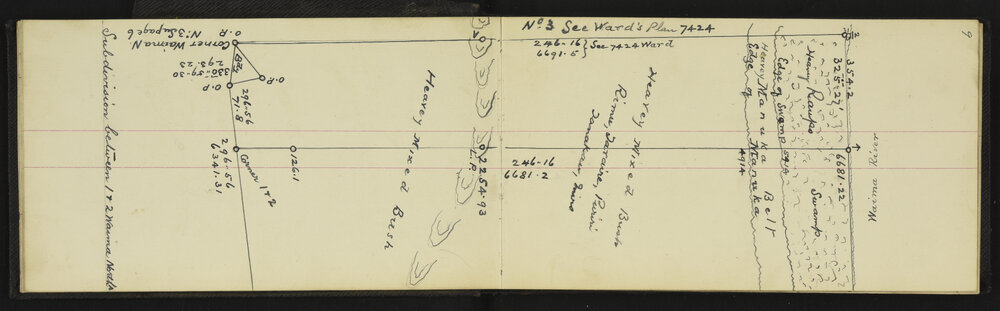 Subdivision between 1 & 2 Waima North
O.P.
Corner Waima N
No. 3 Su page 6
293.23
330°.59.30
O.P
O.P
78
296-56
71.8
296-56
6341.31
Corner 1 & 2
126.1
Heavy Mixed Bush
2254.93
L.P.
No. 3 See Ward's Plan 7424
246-16
6691.5
} See 7424 Ward
246-16
6681.2
Heavy Mixed Bush
Rimu, Taraire, Puriri
Edge of Manuka
4914
Heavy Manuka Belt
Edge of Swamp
Heavy Raupo Swamp
325-27'
354.2
6681.22
Waima River
6